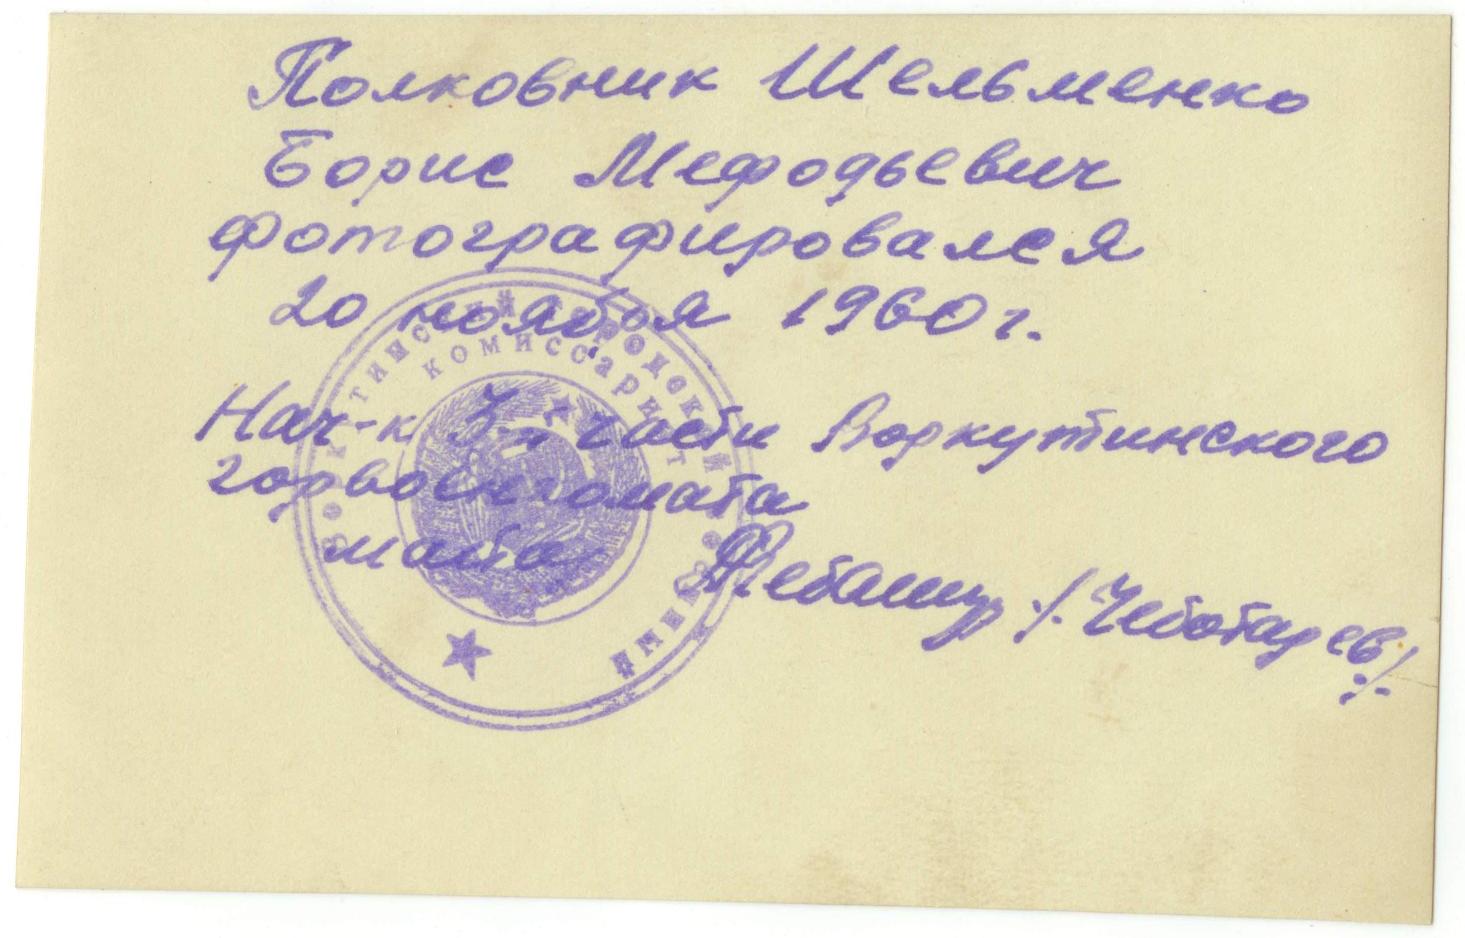 Полковник Шельменко
Борис Мефодьевич
фотографировался
20 ноября 1960 г.
Нач-к 3-й части Воркутинского
горвоенкомата
/Чеботарев/
городской
комиссариат